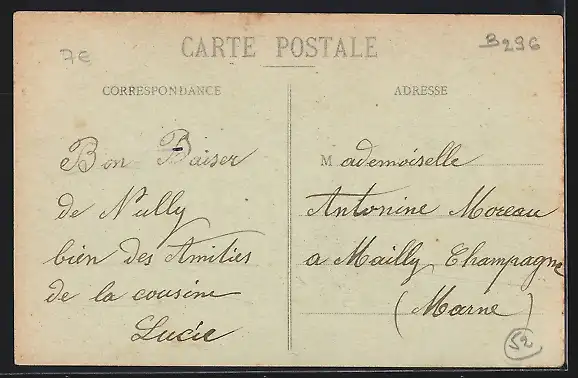 CARTE POSTALE
7E
B296
CORRESPONDANCE
Bon Baiser
de Nully
bien des Amitiés
de la cousine
Lucie
ADRESSE
Mademoiselle
Antonine Moreau
a Mailly Champagne
(Marne)
52